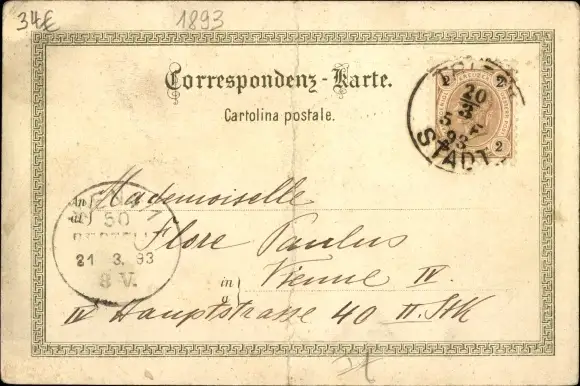 34€
1893
Correspondenz-Karte.
Cartolina postale.
2
2
20
3
5
93
STADT
An
50
21 3. 93
8 V.
Mademoiselle
Flore Paulus
in Vienne IV.
IV Hauptstrasse 40 II. Stk